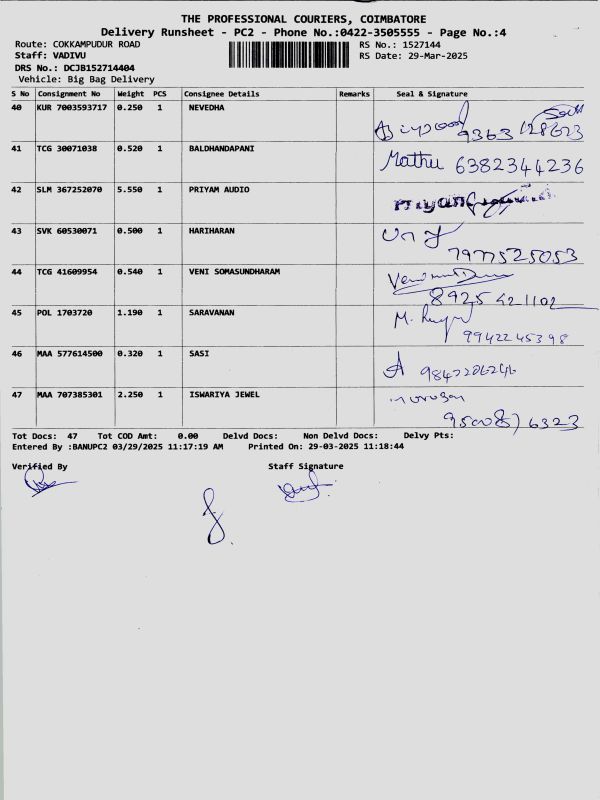 THE PROFESSIONAL COURIERS, COIMBATORE
Delivery Runsheet - PC2 - Phone No.:0422-3505555 - Page No.:4
Route: COKKAMPUDUR ROAD
RS No.: 1527144
Staff: VADIVU
RS Date: 29-Mar-2025
DRS No.: DCJB152714404
Vehicle: Big Bag Delivery
S No Consignment No Weight PCS Consignee Details Remarks Seal & Signature
40 KUR 7003593717 0.250 1 NEVEDHA
9363 128623
41 TCG 30071038 0.520 1 BALDHANDAPANI
Mathu 6382344236
42 SLM 367252070 5.550 1 PRIYAM AUDIO
43 SVK 60530071 0.500 1 HARIHARAN
7977525053
44 TCG 41609954 0.540 1 VENI SOMASUNDHARAM
8925421102
45 POL 1703720 1.190 1 SARAVANAN
M.
9942245398
46 MAA 577614500 0.320 1 SASI
9847206246
47 MAA 707385301 2.250 1 ISWARIYA JEWEL
Tot Docs: 47 Tot COD Amt: 0.00 Delvd Docs: Non Delvd Docs: Delvy Pts:
Entered By :BANUPC2 03/29/2025 11:17:19 AM Printed On: 29-03-2025 11:18:44
Verified By Staff Signature